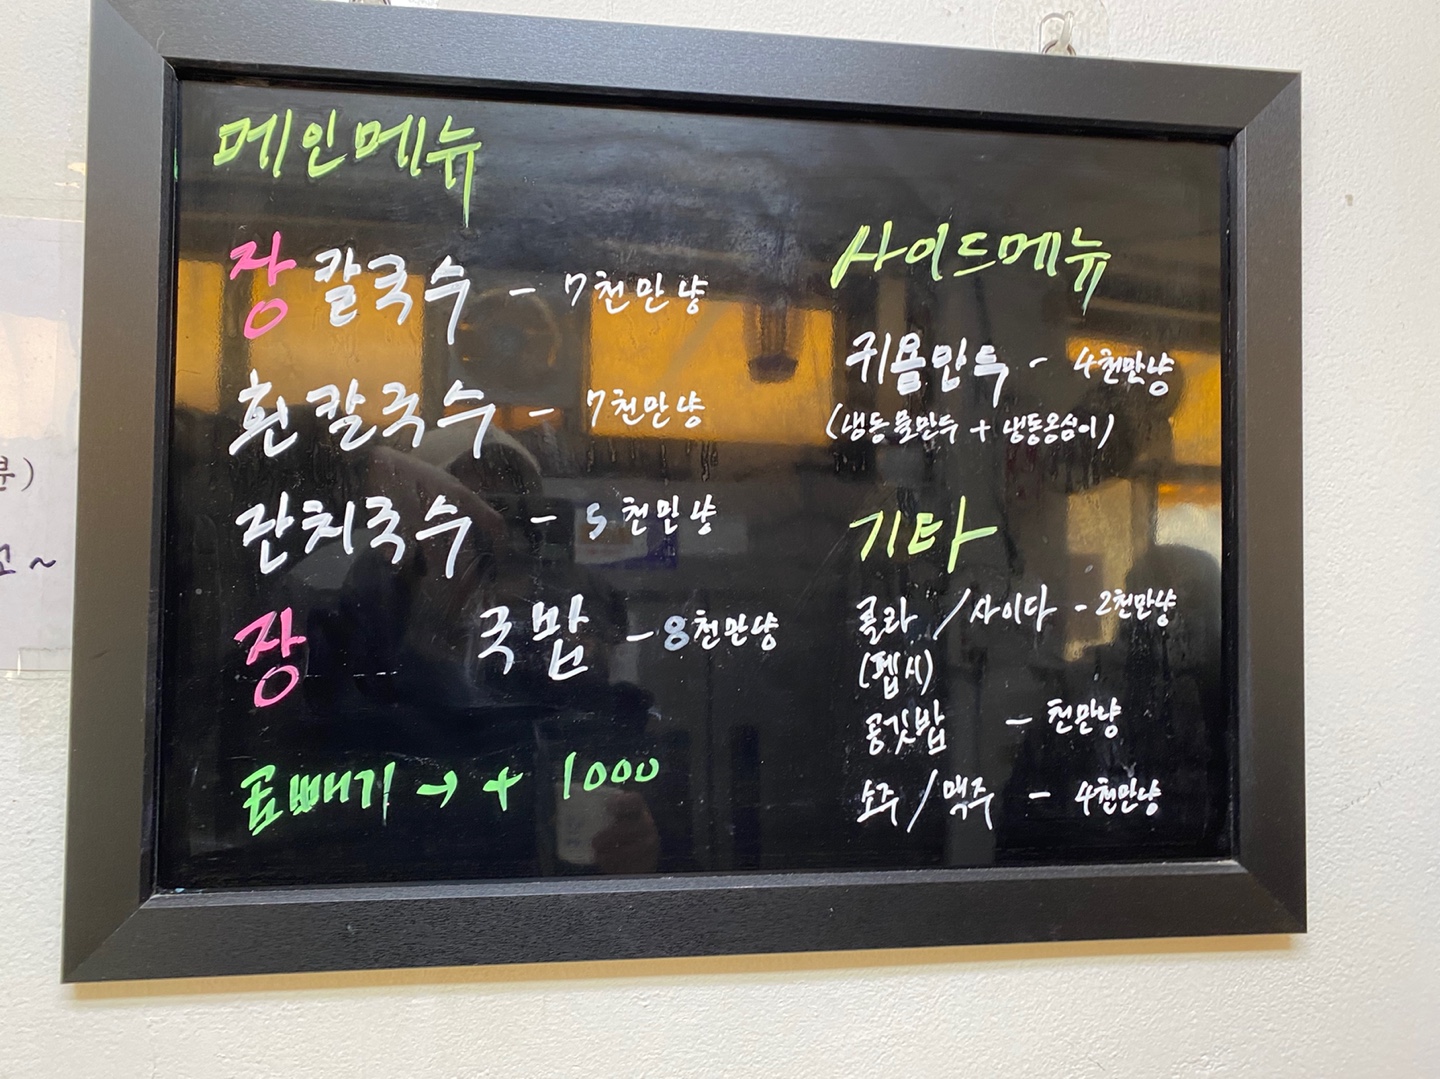 메인메뉴
장 칼국수 - 7천만냥
흰 칼국수 - 7천만냥
잔치국수 - 5천만냥
장 국밥 - 8천만냥
곱빼기 → + 1000
사이드메뉴
귀욤만두 - 4천만냥
(냉동물만두 + 냉동옹심이)
기타
콜라 / 사이다 - 2천만냥
(펩시)
공깃밥 - 천만냥
소주 / 맥주 - 4천만냥
분)
~